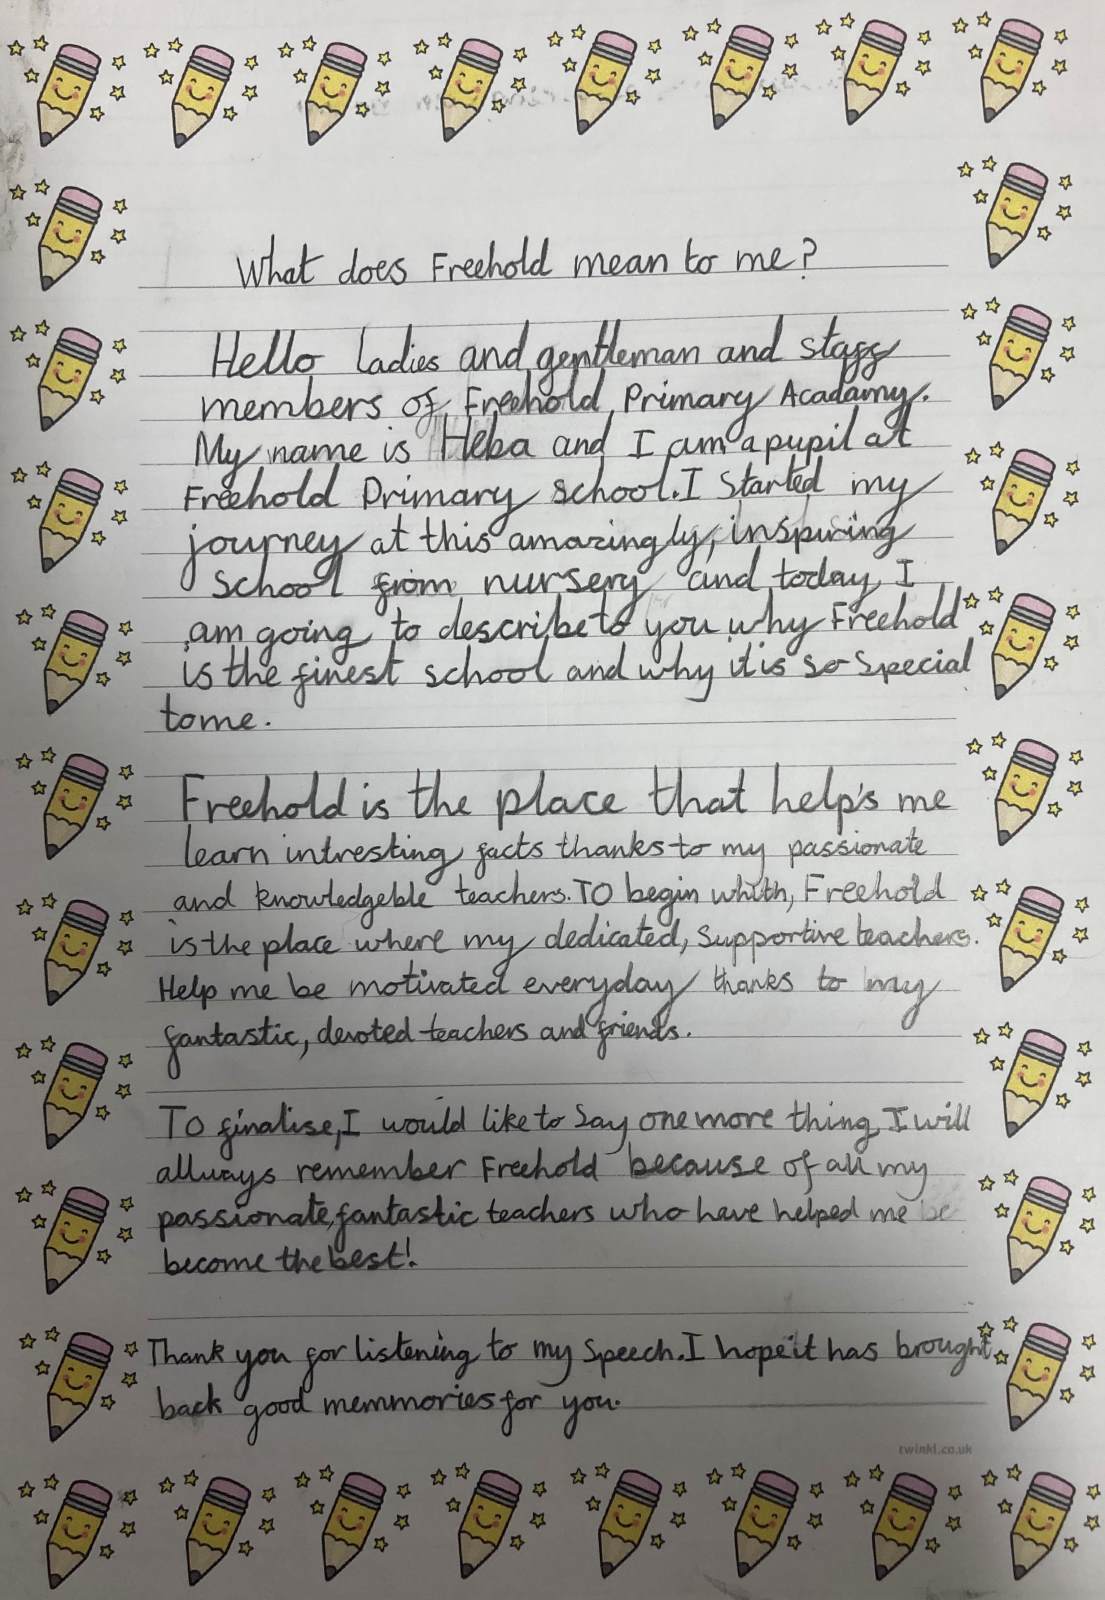 What does Freehold mean to me?
Hello ladies and gentleman and staff
members of Freehold Primary Acadamy.
My name is Heba and I am a pupil at
Freehold Primary School. I Started my
journey at this amazingly, inspiring
school from nursery and today I
am going to describe to you why Freehold
is the finest school and why it is so special
to me.
Freehold is the place that help's me
learn intresting facts thanks to my passionate
and knowledgeble teachers. TO begin whith, Freehold
is the place where my dedicated, Supportive teachers.
Help me be motivated everyday thanks to my
fantastic, devoted teachers and friends.
To finalise, I would like to Say one more thing, I will
allways remember Freehold because of all my
passionate, fantastic teachers who have helped me be
become the best!
Thank you for listening to my Speech. I hope it has brought
back good memmories for you.
twinkl.co.uk